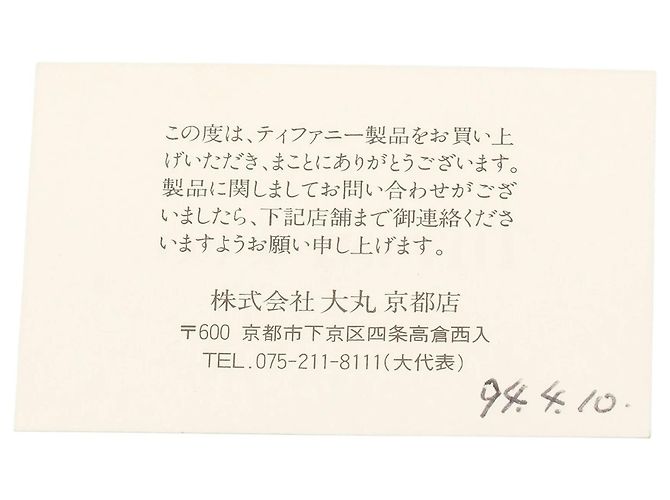 この度は、ティファニー製品をお買い上
げいただき、まことにありがとうございます。
製品に関しましてお問い合わせがござ
いましたら、下記店舗まで御連絡くださ
いますようお願い申し上げます。
株式会社 大丸 京都店
〒600 京都市下京区四条高倉西入
TEL.075-211-8111(大代表)
94.4.10.